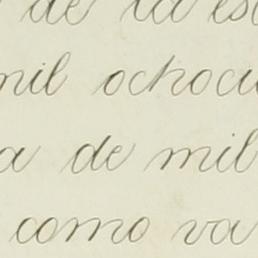 de la es
mil ochoci
a de mil
como va